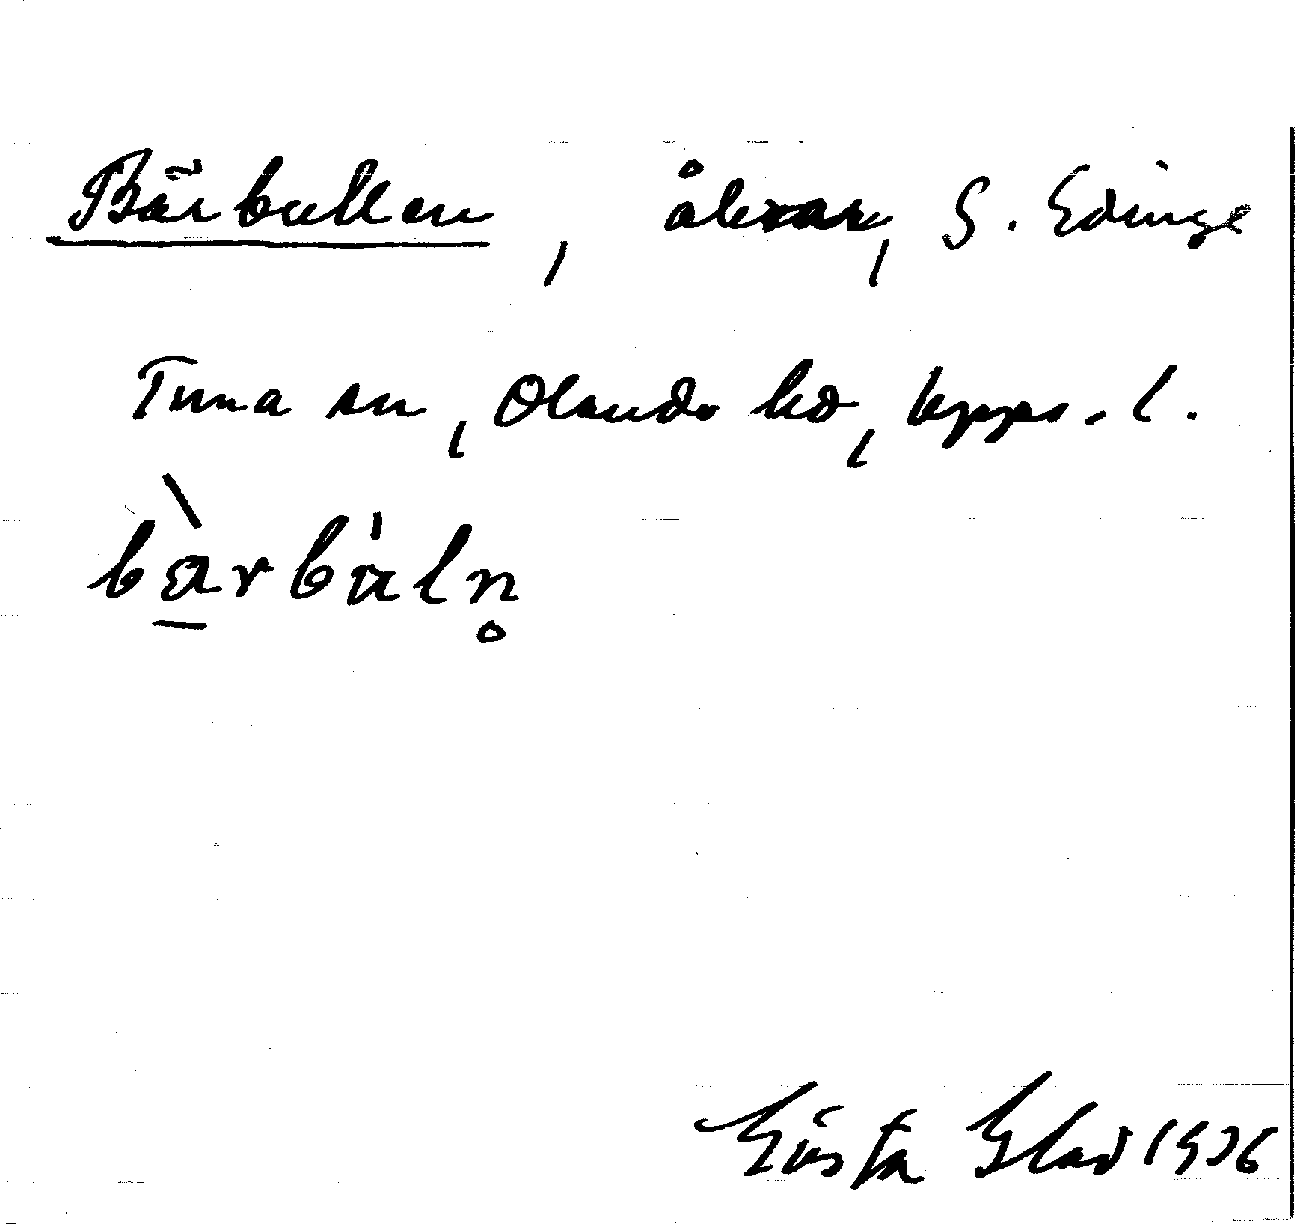 Bärbullen, åkrar, S. Edinge
Tuna sn, Olands hd, Upps. l.
bàrbùln̥
Gösta Glad 1936